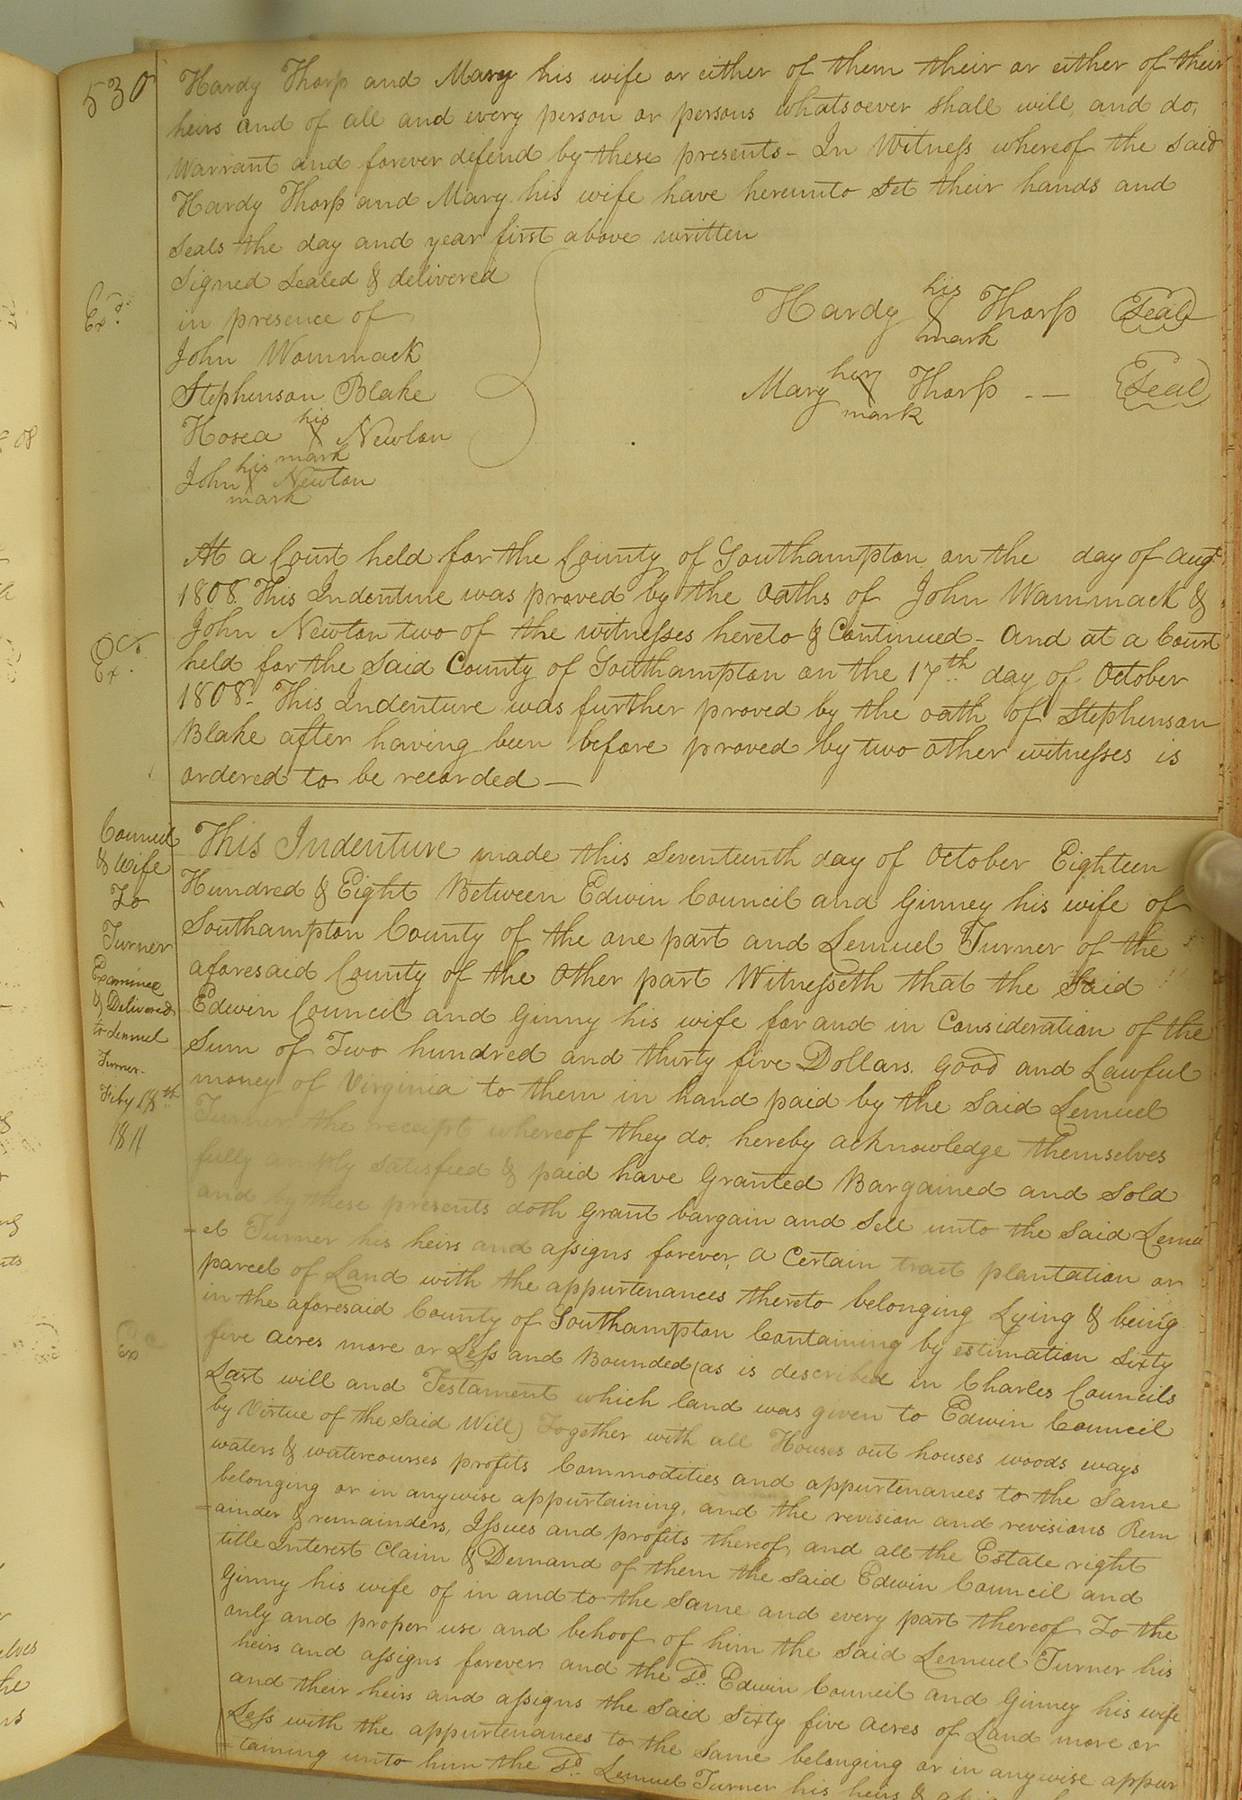 530
Hardy Thorp and Mary his wife or either of them their or either of their
heirs and of all and every person or persons whatsoever shall will and do,
Warrant and forever defend by these presents - In Witness whereof the said
Hardy Thorp and Mary his wife have hereunto set their hands and
Seals the day and year first above written
Signed sealed & delivered
in presence of
John Wommack
Stephenson Blake
Hosea his X mark Newton
John his X mark Newton
Exd.
Hardy his X mark Thorp Seal
Mary her X mark Thorp - - Seal
At a Court held for the County of Southampton on the day of Augt
1808. This Indenture was proved by the oaths of John Wammack &
John Newton two of the witnesses hereto & Continued - And at a Court
held for the said County of Southampton on the 17th. day of October
1808. This Indenture was further proved by the oath of Stephenson
Blake after having been before proved by two other witnesses is
ordered to be recorded —
Ex.
Council
& Wife
To
Turner
Examined
& Delivered
to Lemuel
Turner
Feby 18th
1811
This Indenture made this Seventeenth day of October Eighteen
Hundred & Eight Between Edwin Council and Ginney his wife of
Southampton County of the one part and Lemuel Turner of the
aforesaid County of the other part Witnesseth that the Said
Edwin Council and Ginny his wife for and in Consideration of the
Sum of Two hundred and thirty five Dollars. Good and Lawful
money of Virginia to them in hand paid by the said Lemuel
Turner the receipt whereof they do, hereby acknowledge themselves
fully satisfied & paid have Granted Bargained and Sold
and by these presents doth Grant bargain and Sell unto the said Lemu
-el Turner his heirs and assigns forever, a Certain tract plantation or
parcel of Land with the appurtenances thereto belonging Lying & being
in the aforesaid County of Southampton Containing by estimation Sixty
five acres more or Less and Bounded (as is described in Charles Councils
Last will and Testament which land was given to Edwin Council
by Virtue of the Said Will) Together with all Houses out houses woods ways
waters & watercourses profits Commodities and appurtenances to the Same
belonging or in anywise appurtaining, and the revision and revisions Rem
=ainder & remainders, Issues and profits thereof, and all the Estate right
title Interest Claim & Demand of them the Said Edwin Council and
Ginny his wife of in and to the Same and every part thereof To the
only and proper use and behoof of him the said Lemuel Turner his
heirs and assigns forever and the Sd. Edwin Council and Ginney his wife
and their heirs and assigns the Said Sixty five Acres of Land more or
Less with the appurtenances to the Same belonging or in anywise appur
-taining unto him the Sd. Lemuel Turner his heirs &